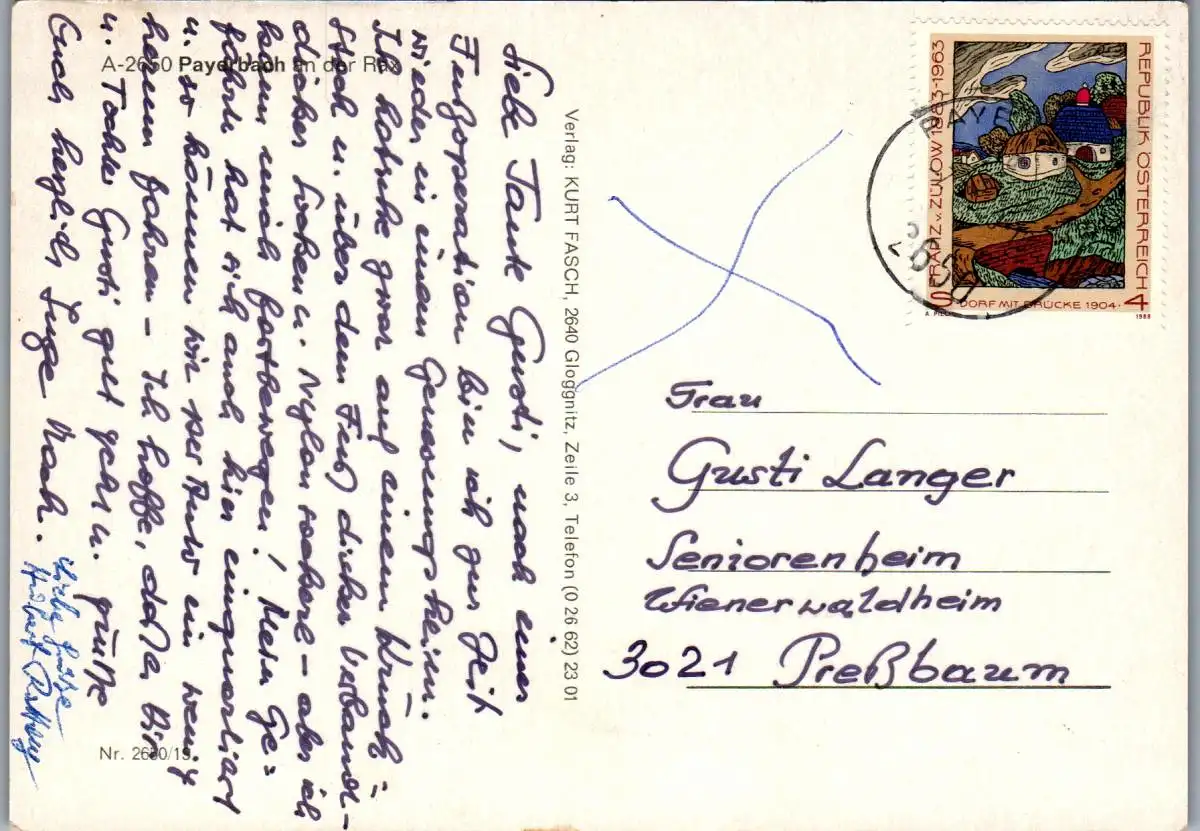 A-2650 Payerbach an der Rax
Liebe Tante Gusti, nach einer
Fußoperation bin ich zur Zeit
wieder in einem Genesungsheim.
Ich hatsche zwar auf einem Krück=
stock u. über dem Fuß dicker Verband –
dicker Socken u. Nylonsockerl – aber ich
kann mich fortbewegen! Mein Ge=
fährte hat sich auch hier einquartiert
u. so können wir per Auto ein wenig
herum fahren – Ich hoffe, daß es Dir
u. Tochter Gusti gut geht u. grüße
Euch herzlich, Inge Nach.
Liebe Grüße
Nr. 2650/19
Verlag: KURT FASCH, 2640 Gloggnitz, Zeile 3, Telefon (0 26 62) 23 01
REPUBLIK ÖSTERREICH
FRANZ v. ZÜLOW 1883-1963
S 4
DORF MIT BRÜCKE 1904
1988
PAYE
2650
Frau
Gusti Langer
Seniorenheim
Wienerwaldheim
3021 Preßbaum